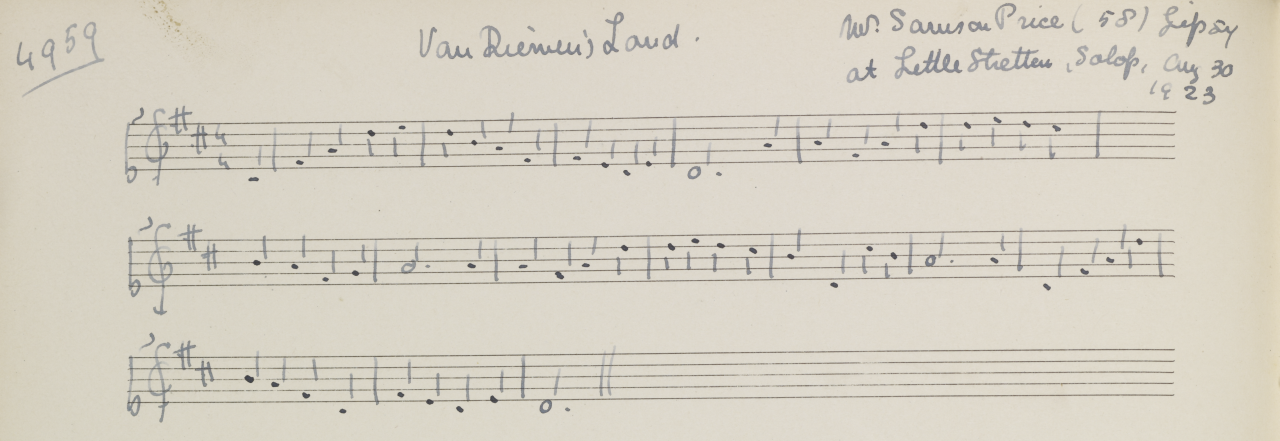 4959
Van Diemen's Land.
Mr. Samson Price (58) Gipsy
at Little Stretton, Salop, Aug 30
1923
4
4